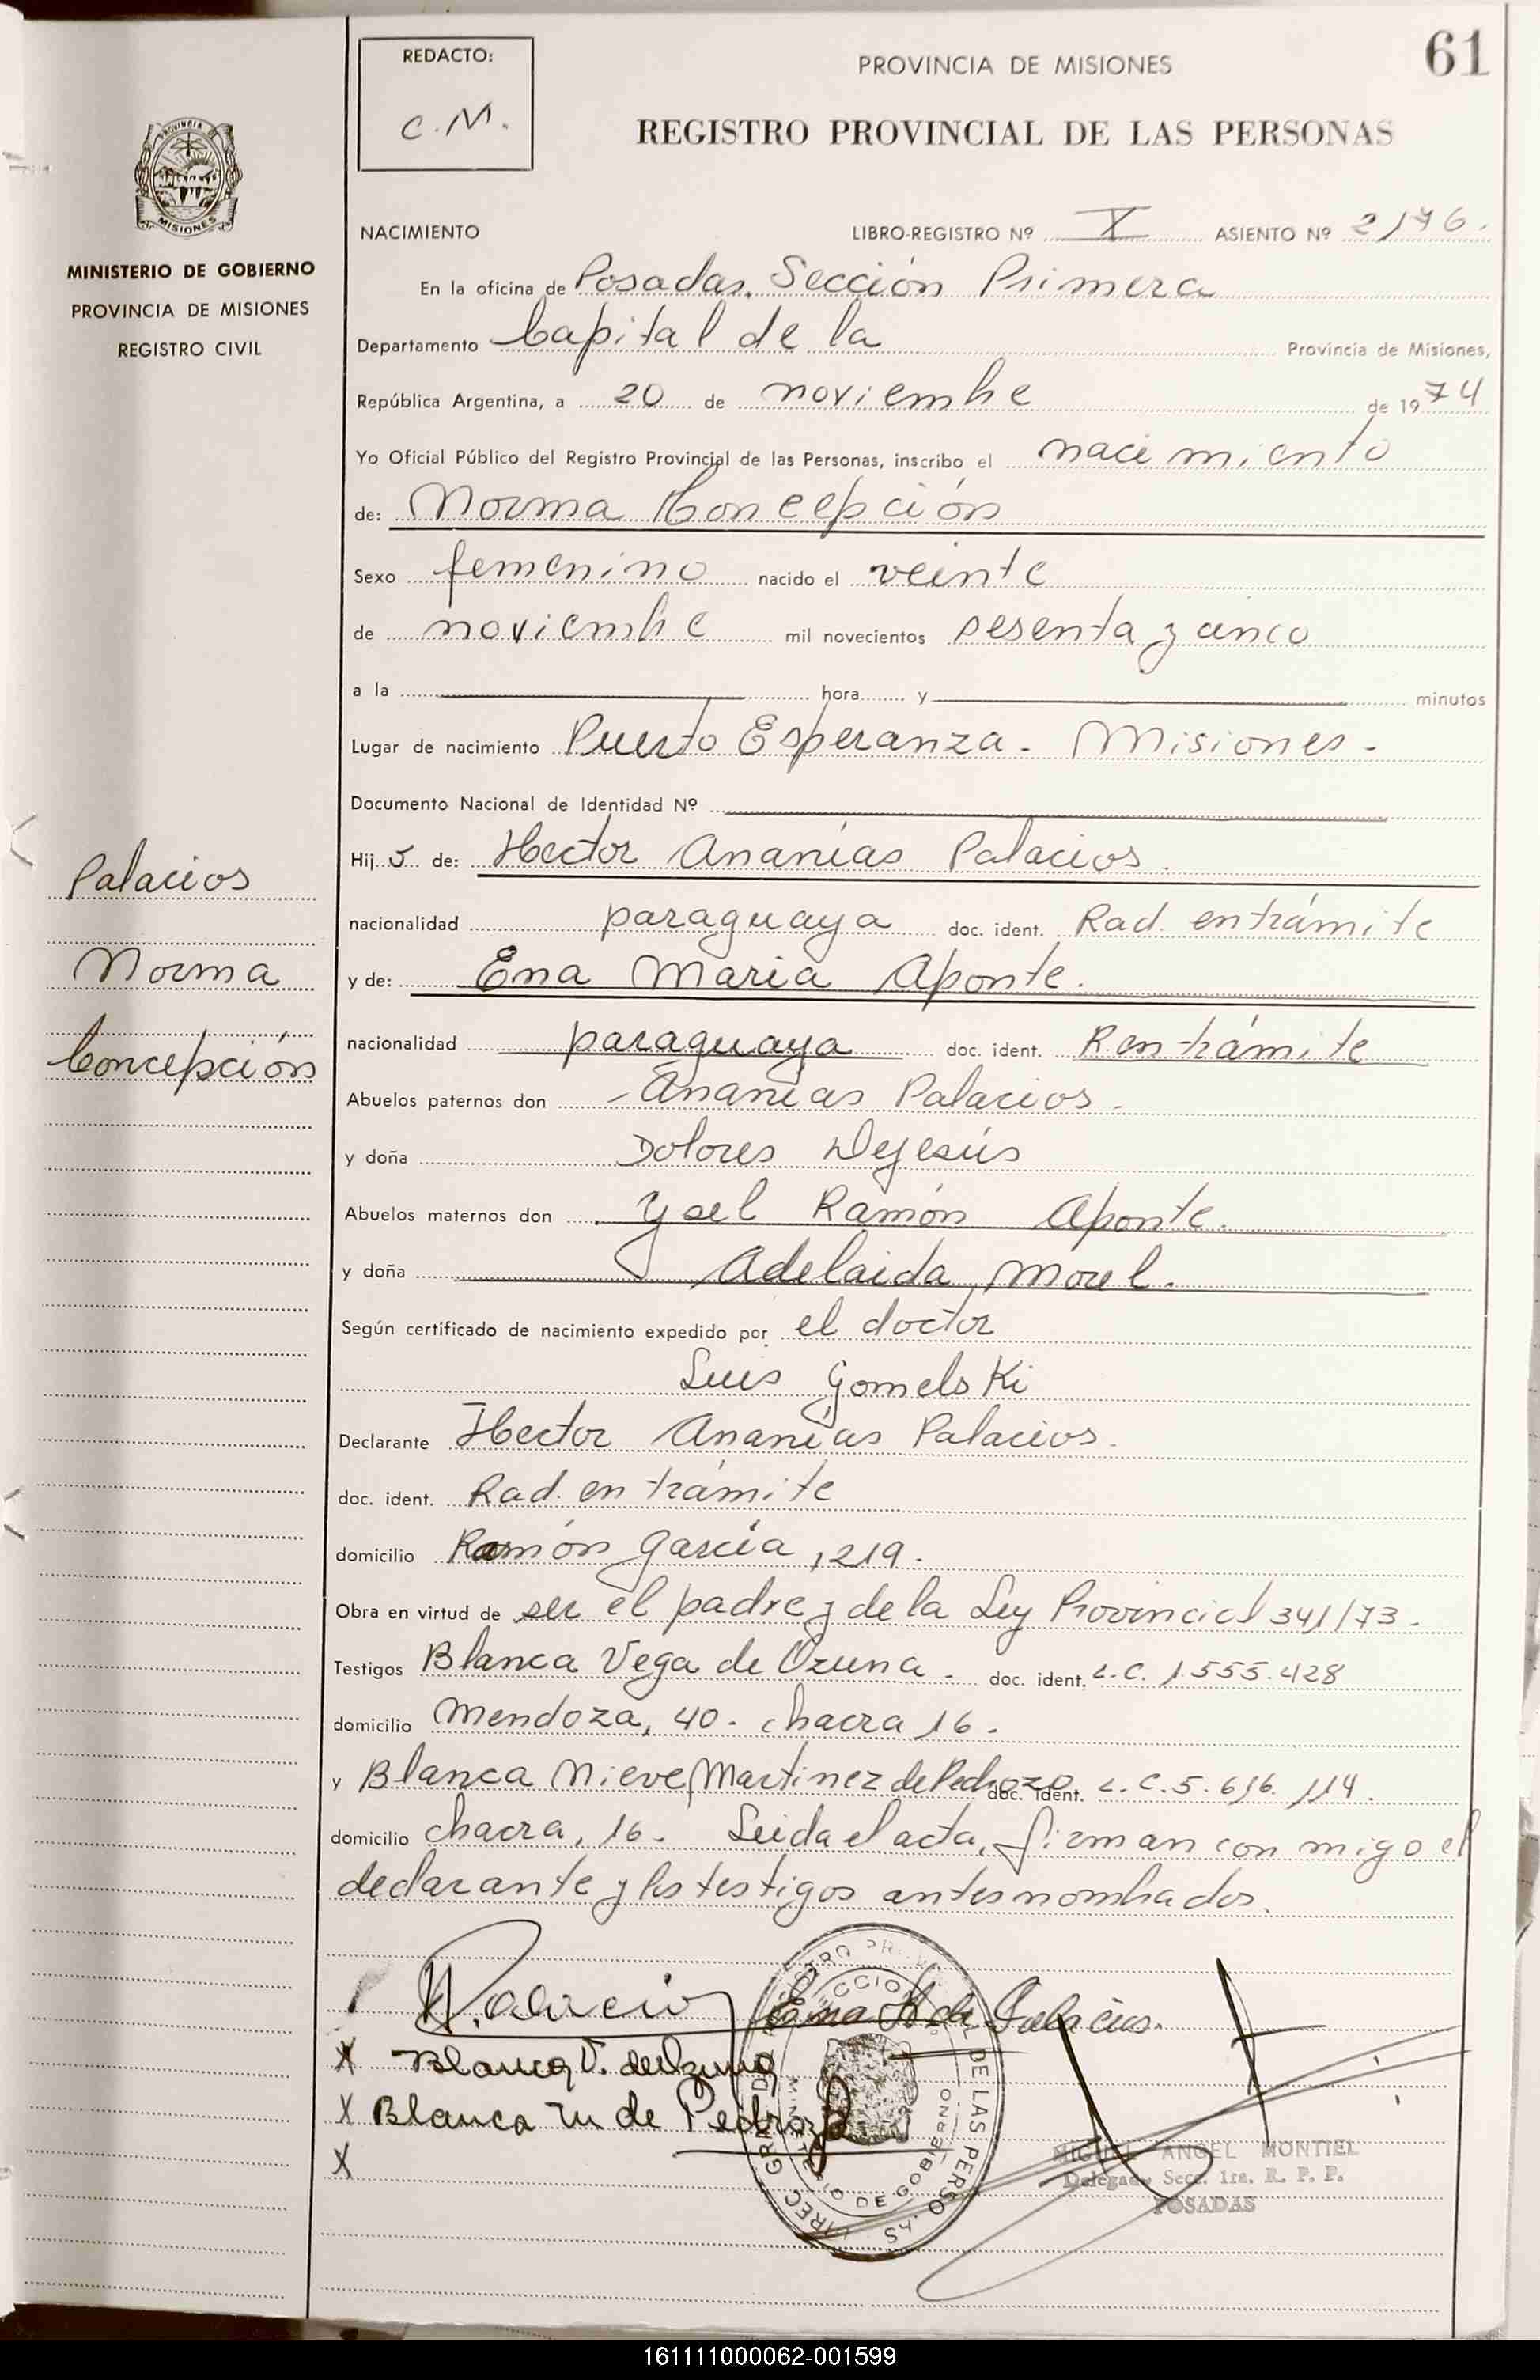 REDACTO:
C.M.
PROVINCIA DE MISIONES
61
REGISTRO PROVINCIAL DE LAS PERSONAS
PROVINCIA DE
MISIONES
MINISTERIO DE GOBIERNO
PROVINCIA DE MISIONES
REGISTRO CIVIL
NACIMIENTO LIBRO-REGISTRO Nº X ASIENTO Nº 2176.
En la oficina de Posadas. Sección Primera
Departamento Capital de la Provincia de Misiones,
República Argentina, a 20 de noviembre de 1974
Yo Oficial Público del Registro Provincial de las Personas, inscribo el nacimiento
de: Norma Concepción
Sexo femenino nacido el veinte
de noviembre mil novecientos sesenta y cinco
a la hora y minutos
Lugar de nacimiento Puerto Esperanza - Misiones -
Documento Nacional de Identidad Nº
Hij de: Hector Ananías Palacios.
nacionalidad paraguaya doc. ident. Rad. en trámite
y de: Ena Maria Aponte.
nacionalidad paraguaya doc. ident. R en trámite
Abuelos paternos don - Ananías Palacios -
y doña Dolores Dejesús
Abuelos maternos don Ysel Ramón Aponte.
y doña Adelaida Morel.
Según certificado de nacimiento expedido por el doctor
Luis Gomelski
Declarante Hector Ananías Palacios.
doc. ident. Rad. en trámite
domicilio Ramón García, 219.
Obra en virtud de ser el padre y de la Ley Provincial 341/73.
Testigos Blanca Vega de Ozuna. doc. ident. L.C. 1.555.428
domicilio Mendoza, 40 - chacra 16.
y Blanca Nieve Martinez de Pedrozo doc. ident. L.C. 5.616.114.
domicilio chacra, 16. Leida el acta, firman conmigo el
declarante y los testigos antes nombrados.
Palacios
Norma
Concepción
H. Palacios Ena A de Palacios.
X Blanca V. de Ozuna
X Blanca M de Pedrozo
X
MIGUEL ANGEL MONTIEL
Delegado Secc. 1ra. R. P. P.
POSADAS
161111000062-001599